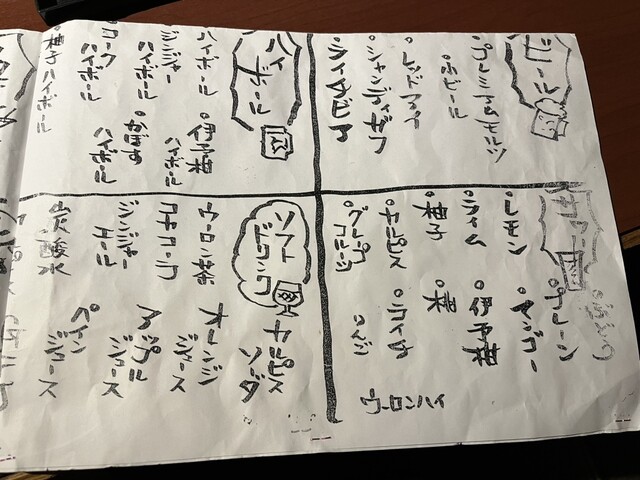 ビール
プレミアムモルツ
ふビール
レッドアイ
シャンディガフ
ライチビア
ハイボール
ハイボール
ジンジャーハイボール
コークハイボール
柚子ハイボール
伊予柑ハイボール
かぼすハイボール
サワー
プレーン
レモン
ライム
柚子
カルピス
グレープフルーツ
マンゴー
伊予柑
梅
ライチ
ウーロンハイ
ソフトドリンク
ウーロン茶
コカコーラ
ジンジャーエール
炭酸水
カルピスソーダ
オレンジジュース
アップルジュース
パインジュース